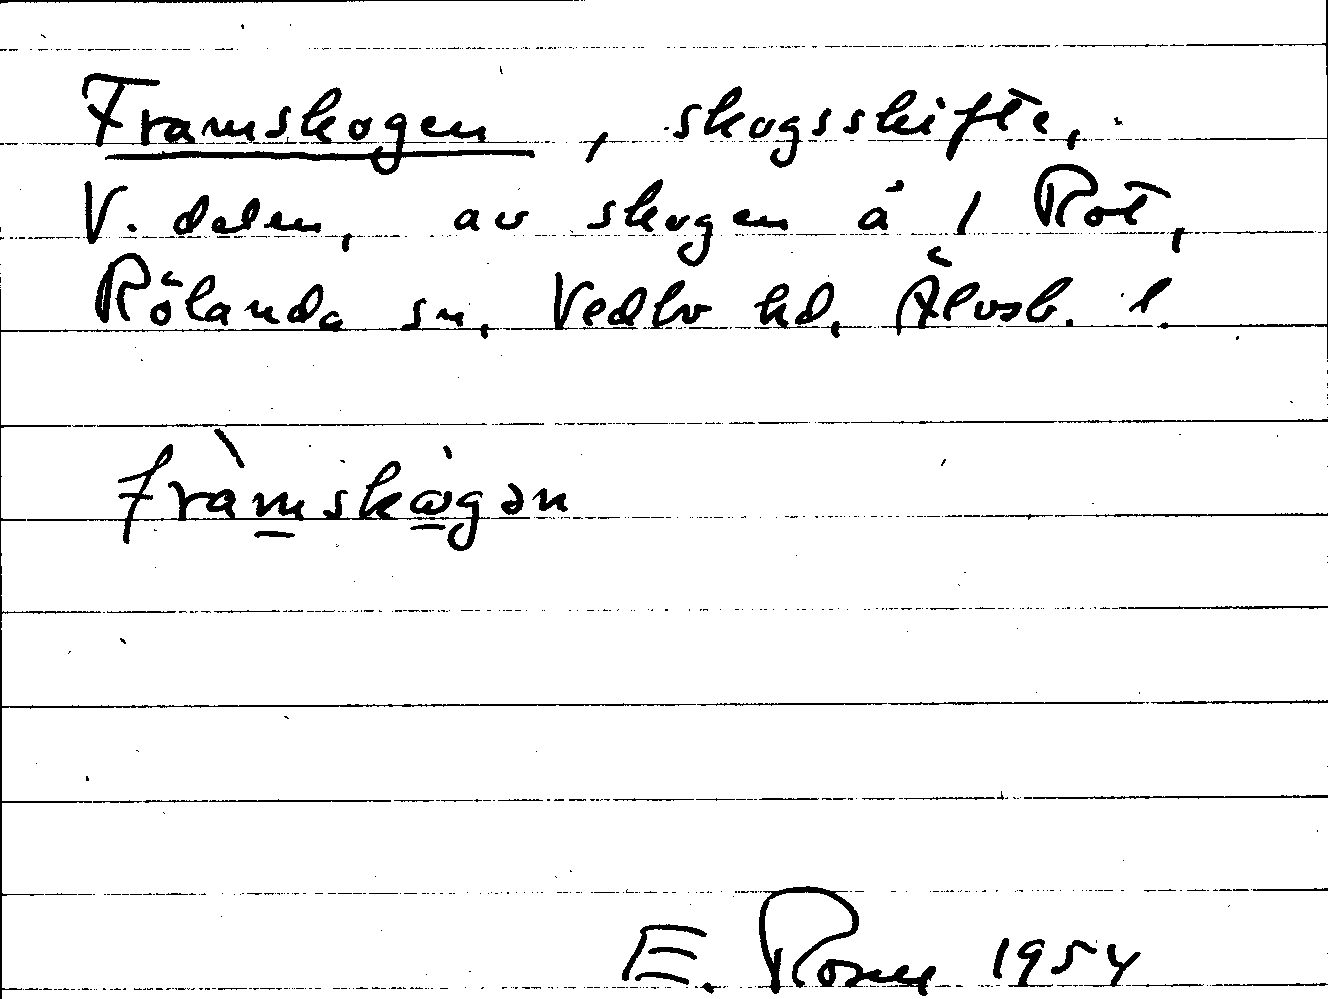 Framskogen, skogsskifte,
V. delen, av skogen å 1 Rot,
Rölanda sn, Vedbo hd, Älvsb. l.
fràmskògən
E. 1954